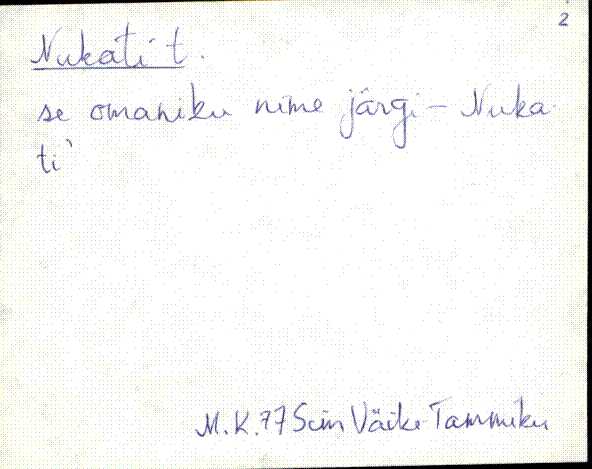 2
Nukati t.
se omaniku nime järgi – Nuka-
ti`
M. K. 77 Sim Väike-Tammiku